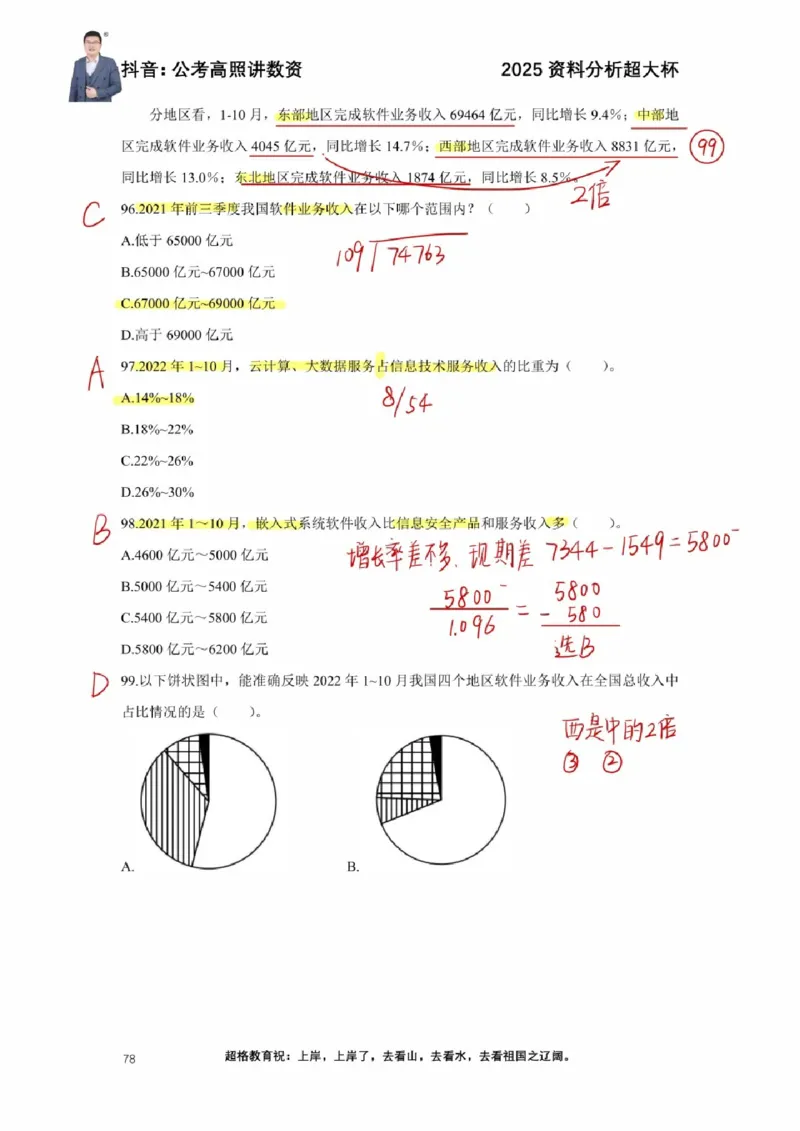 抖音：公考高照讲数资
2025 资料分析超大杯
分地区看，1-10 月，东部地区完成软件业务收入 69464 亿元，同比增长 9.4%；中部地
区完成软件业务收入 4045 亿元，同比增长 14.7%；西部地区完成软件业务收入 8831 亿元，
99
同比增长 13.0%；东北地区完成软件业务收入 1874 亿元，同比增长 8.5%。
2倍
C
96.2021 年前三季度我国软件业务收入在以下哪个范围内？（ ）
A.低于 65000 亿元
109 74763
B.65000 亿元~67000 亿元
C.67000 亿元~69000 亿元
D.高于 69000 亿元
A
97.2022 年 1~10 月，云计算、大数据服务占信息技术服务收入的比重为（ ）。
A.14%~18%
8/54
B.18%~22%
C.22%~26%
D.26%~30%
B
98.2021 年 1～10 月，嵌入式系统软件收入比信息安全产品和服务收入多（ ）。
A.4600 亿元～5000 亿元
增长率差不多、现期差 7344-1549=5800⁻
B.5000 亿元～5400 亿元
5800⁻ 5800
C.5400 亿元～5800 亿元
1.096 = - 580
D.5800 亿元～6200 亿元
选B
D
99.以下饼状图中，能准确反映 2022 年 1~10 月我国四个地区软件业务收入在全国总收入中
占比情况的是（ ）。
西是中的2倍
③ ②
A.
B.
78
超格教育祝：上岸，上岸了，去看山，去看水，去看祖国之辽阔。